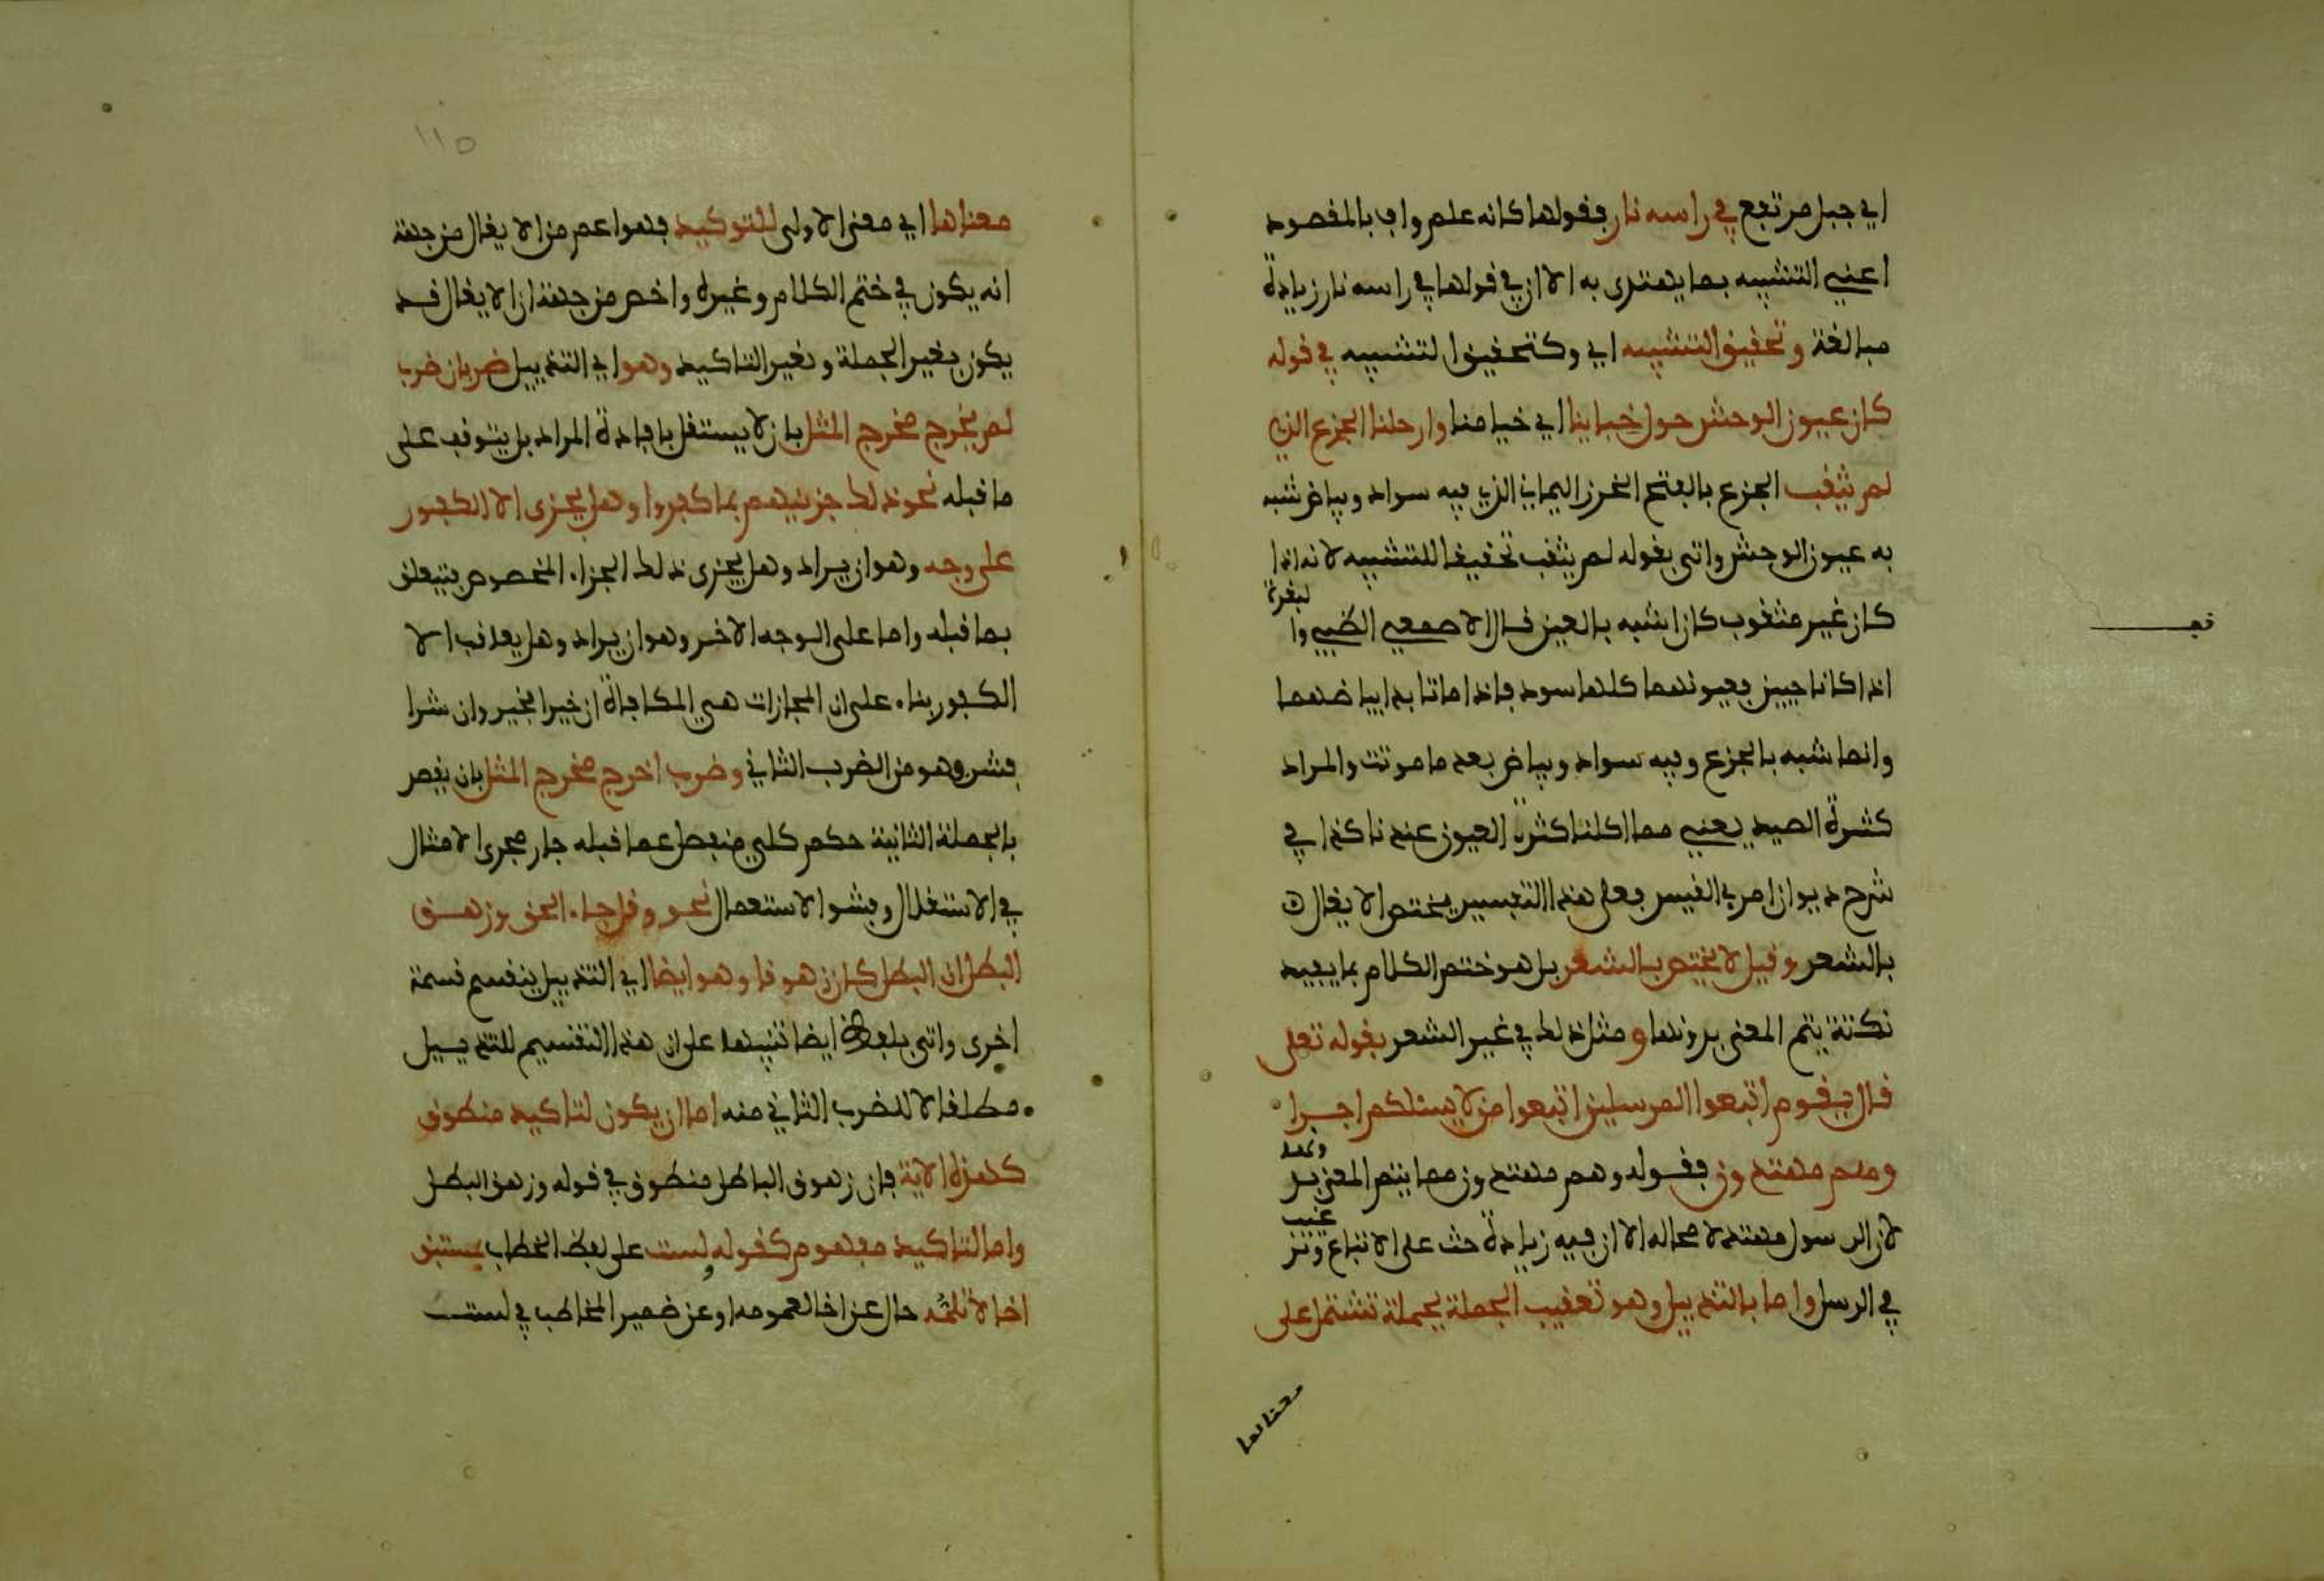 اي جبل مرتفع في راسه نار فقولها كانه علم واف بالمقصود
اعني التشبيه بما يهتدى به الا ان في قولها في راسه نار زيادة
مبالغة وتحقيق التشبيه اي وكتحقيق التشبيه في قوله
كان عيون الوحش حول خباينا اي خيامنا وارحلنا الجزع الذي
لم يثقب الجزع بالفتح الخرز اليماني الذي فيه سواد وبياض شبه
به عيون الوحش واتى بقوله لم يثقب تحقيقا للتشبيه لانه اذا
كان غير مثقوب كان اشبه بالعين قال الاصمعي الظبي والبقرة
اذا كانا حيين فعيونهما كلها سود فاذا ماتا بدا بياضهما
وانما شبه بالجزع وفيه سواد وبياض بعد ما موتت والمراد
كثرة الصيد يعني مما اكلنا كثرت العيون عندنا كذا في
شرح ديوان امرئ القيس فعلى هذا التفسير يختص الايغال
بالشعر وقيل لا يختص بالشعر بل هو ختم الكلام بما يفيد
نكتة يتم المعنى بدونها ومثل ذلك في غير الشعر بقوله تعلى
قال يقوم اتبعوا المرسلين اتبعوا من لا يسئلكم اجرا
وهم مهتدون فقوله وهم مهتدون مما يتم المعنى بدونه
لان الرسول مهتد لا محاله الا ان فيه زيادة حث على الاتباع وترغيب
في الرسل واما بالتذييل وهو تعقيب الجملة بجملة تشتمل على
معناها
١١٥
معناها اي معنى الاولى للتوكيد فهو اعم من الايغال من جهة
انه يكون في ختم الكلام وغيره واخص من جهة ان الايغال قد
يكون بغير الجملة وبغير التاكيد وهو اي التذييل ضربان ضرب
لم يخرج مخرج المثل بان لا يستقل بافادة المراد بل يتوقف على
ما قبله نحو ذلك جزينهم بما كفروا وهل يجزى الا الكفور
على وجه وهو ان يراد وهل يجزى ذلك الجزاء المخصوص فيتعلق
بما قبله واما على الوجه الاخر وهو ان يراد وهل يعاقب الا
الكفور بناء على ان المجازات هي المكافاة ان خيرا فخير وان شرا
فشر وهو من الضرب الثاني وضرب اخرج مخرج المثل بان يقصد
بالجملة الثانية حكم كلي منفصل عما قبله جار مجرى الامثال
في الاستقلال وفشو الاستعمال نحو وقل جاء الحق وزهق
البطل ان البطل كان زهوقا وهو ايضا اي التذييل ينقسم قسمة
اخرى واتى بلفظ ايضا تنبيها على ان هذا التقسيم للتذييل
مطلقا لا للضرب الثاني منه اما ان يكون لتاكيد منطوق
كهذه الاية فان زهوق الباطل منطوق في قوله وزهق البطل
واما لتاكيد مفهوم كقوله ولست على لفظ الخطاب بمستبق
اخا لا تلمه حال عن اخا لعمومه او عن ضمير المخاطب في لست